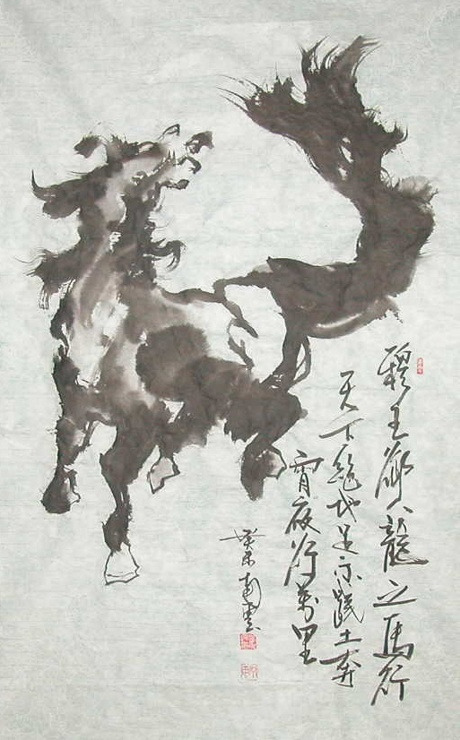 穆王御八龍之馬行
天下絕地足不踐土奔
霄夜行萬里